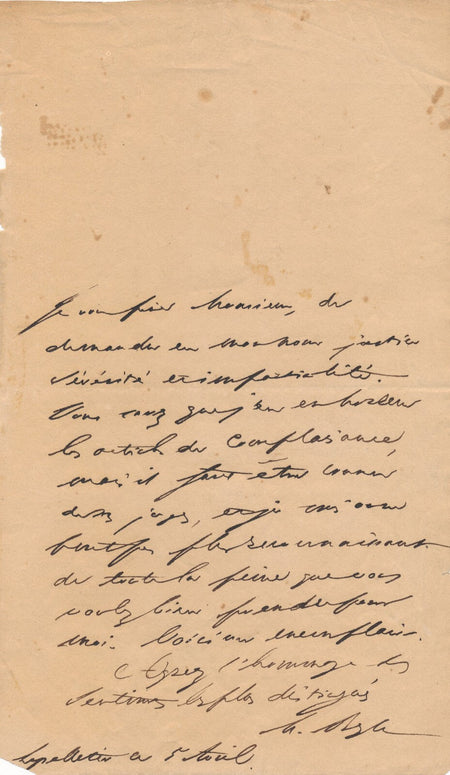 Je vous prie Monsieur, de
demander en mon nom justice
sévérité et impartialité.
Vous savez que j'ai en horreur
les articles de complaisance,
mais il faut être connu
de ses juges, et je
plus reconnaissant
de toute la peine que vous
voulez bien prendre pour
moi. Voici un exemplaire.
Agréez l'hommage des
sentimens les plus distingués
Lepelletier ce 5 Avril.